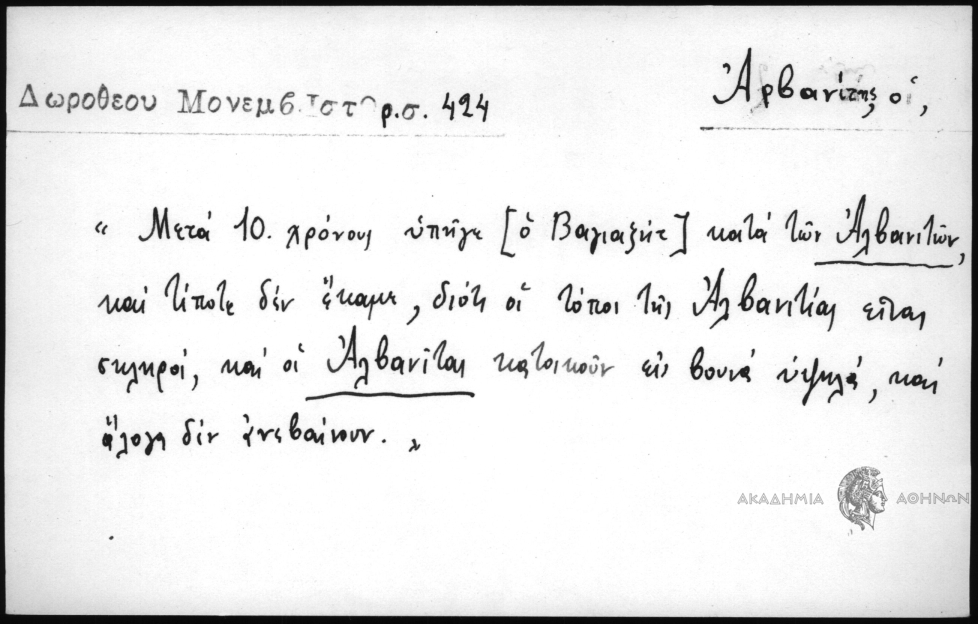 Δωροθεου Μονεμβ. Ιστορ. σ. 424
Ἀρβανίτης, ὁ,
« Μετά 10. χρόνους ὑπῆγε [ὁ Βαγιαζήτ] κατά τῶν Ἀλβανιτῶν,
καί τίποτε δέν ἔκαμε, διότι οἱ τόποι τῆς Ἀλβανιτίας εἶναι
σκληροί, καί οἱ Ἀλβανῖται κατοικοῦν εἰς βουνά ὑψηλά, καί
ἄλογα δέν ἀνεβαίνουν. »
ΑΚΑΔΗΜΙΑ ΑΘΗΝΩΝ